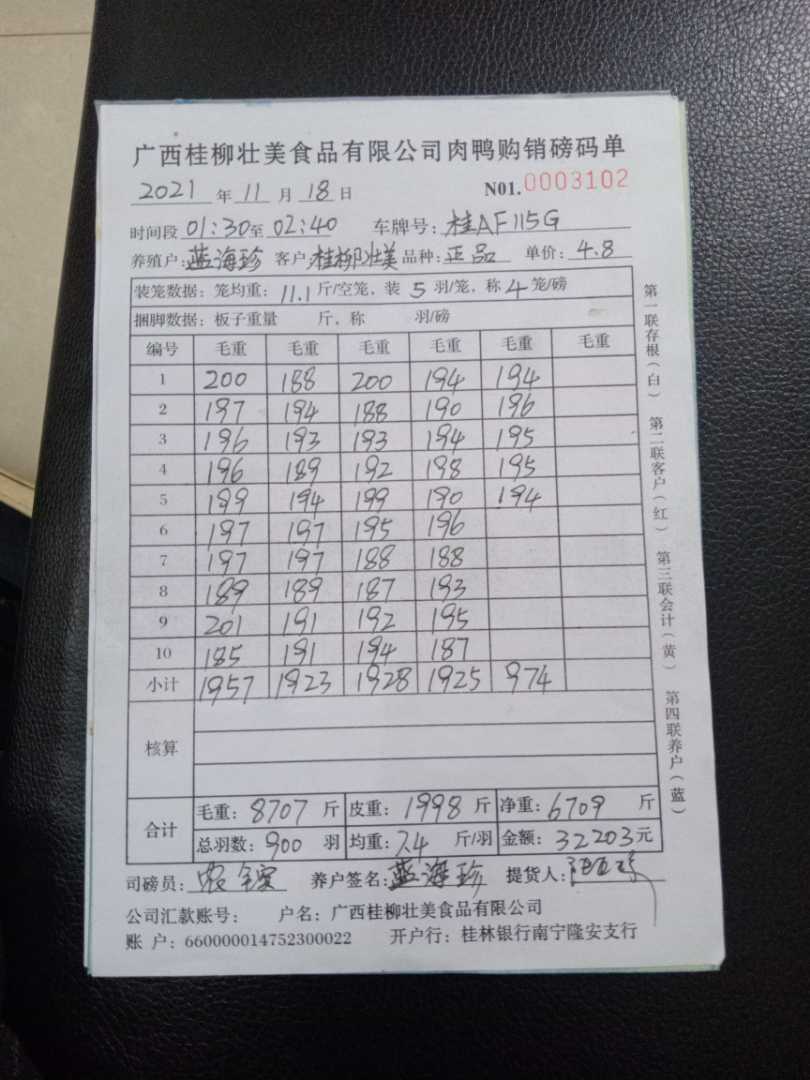 广西桂柳壮美食品有限公司肉鸭购销磅码单
2021 年 11 月 18 日 N01.0003102
时间段 01:30至 02:40 车牌号: 桂AF115G
养殖户: 蓝海珍 客户: 桂柳壮美 品种: 正品 单价: 4.8
装笼数据: 笼均重: 11.1 斤/空笼, 装 5 羽/笼, 称 4 笼/磅
捆脚数据: 板子重量 斤, 称 羽/磅
编号 毛重 毛重 毛重 毛重 毛重 毛重
1 200 188 200 194 194
2 197 194 188 190 196
3 196 193 193 194 195
4 196 189 192 198 195
5 199 194 199 190 194
6 197 197 195 196
7 197 197 188 188
8 189 189 187 193
9 201 191 192 195
10 185 191 194 187
小计 1957 1923 1928 1925 974
核算
合计 毛重: 8707 斤 皮重: 1998 斤 净重: 6709 斤
总羽数: 900 羽 均重: 7.4 斤/羽 金额: 32203元
司磅员: 养户签名: 蓝海珍 提货人:
公司汇款账号: 户名: 广西桂柳壮美食品有限公司
账 户: 660000014752300022 开户行: 桂林银行南宁隆安支行
第一联存根(白) 第二联客户(红) 第三联会计(黄) 第四联养户(蓝)